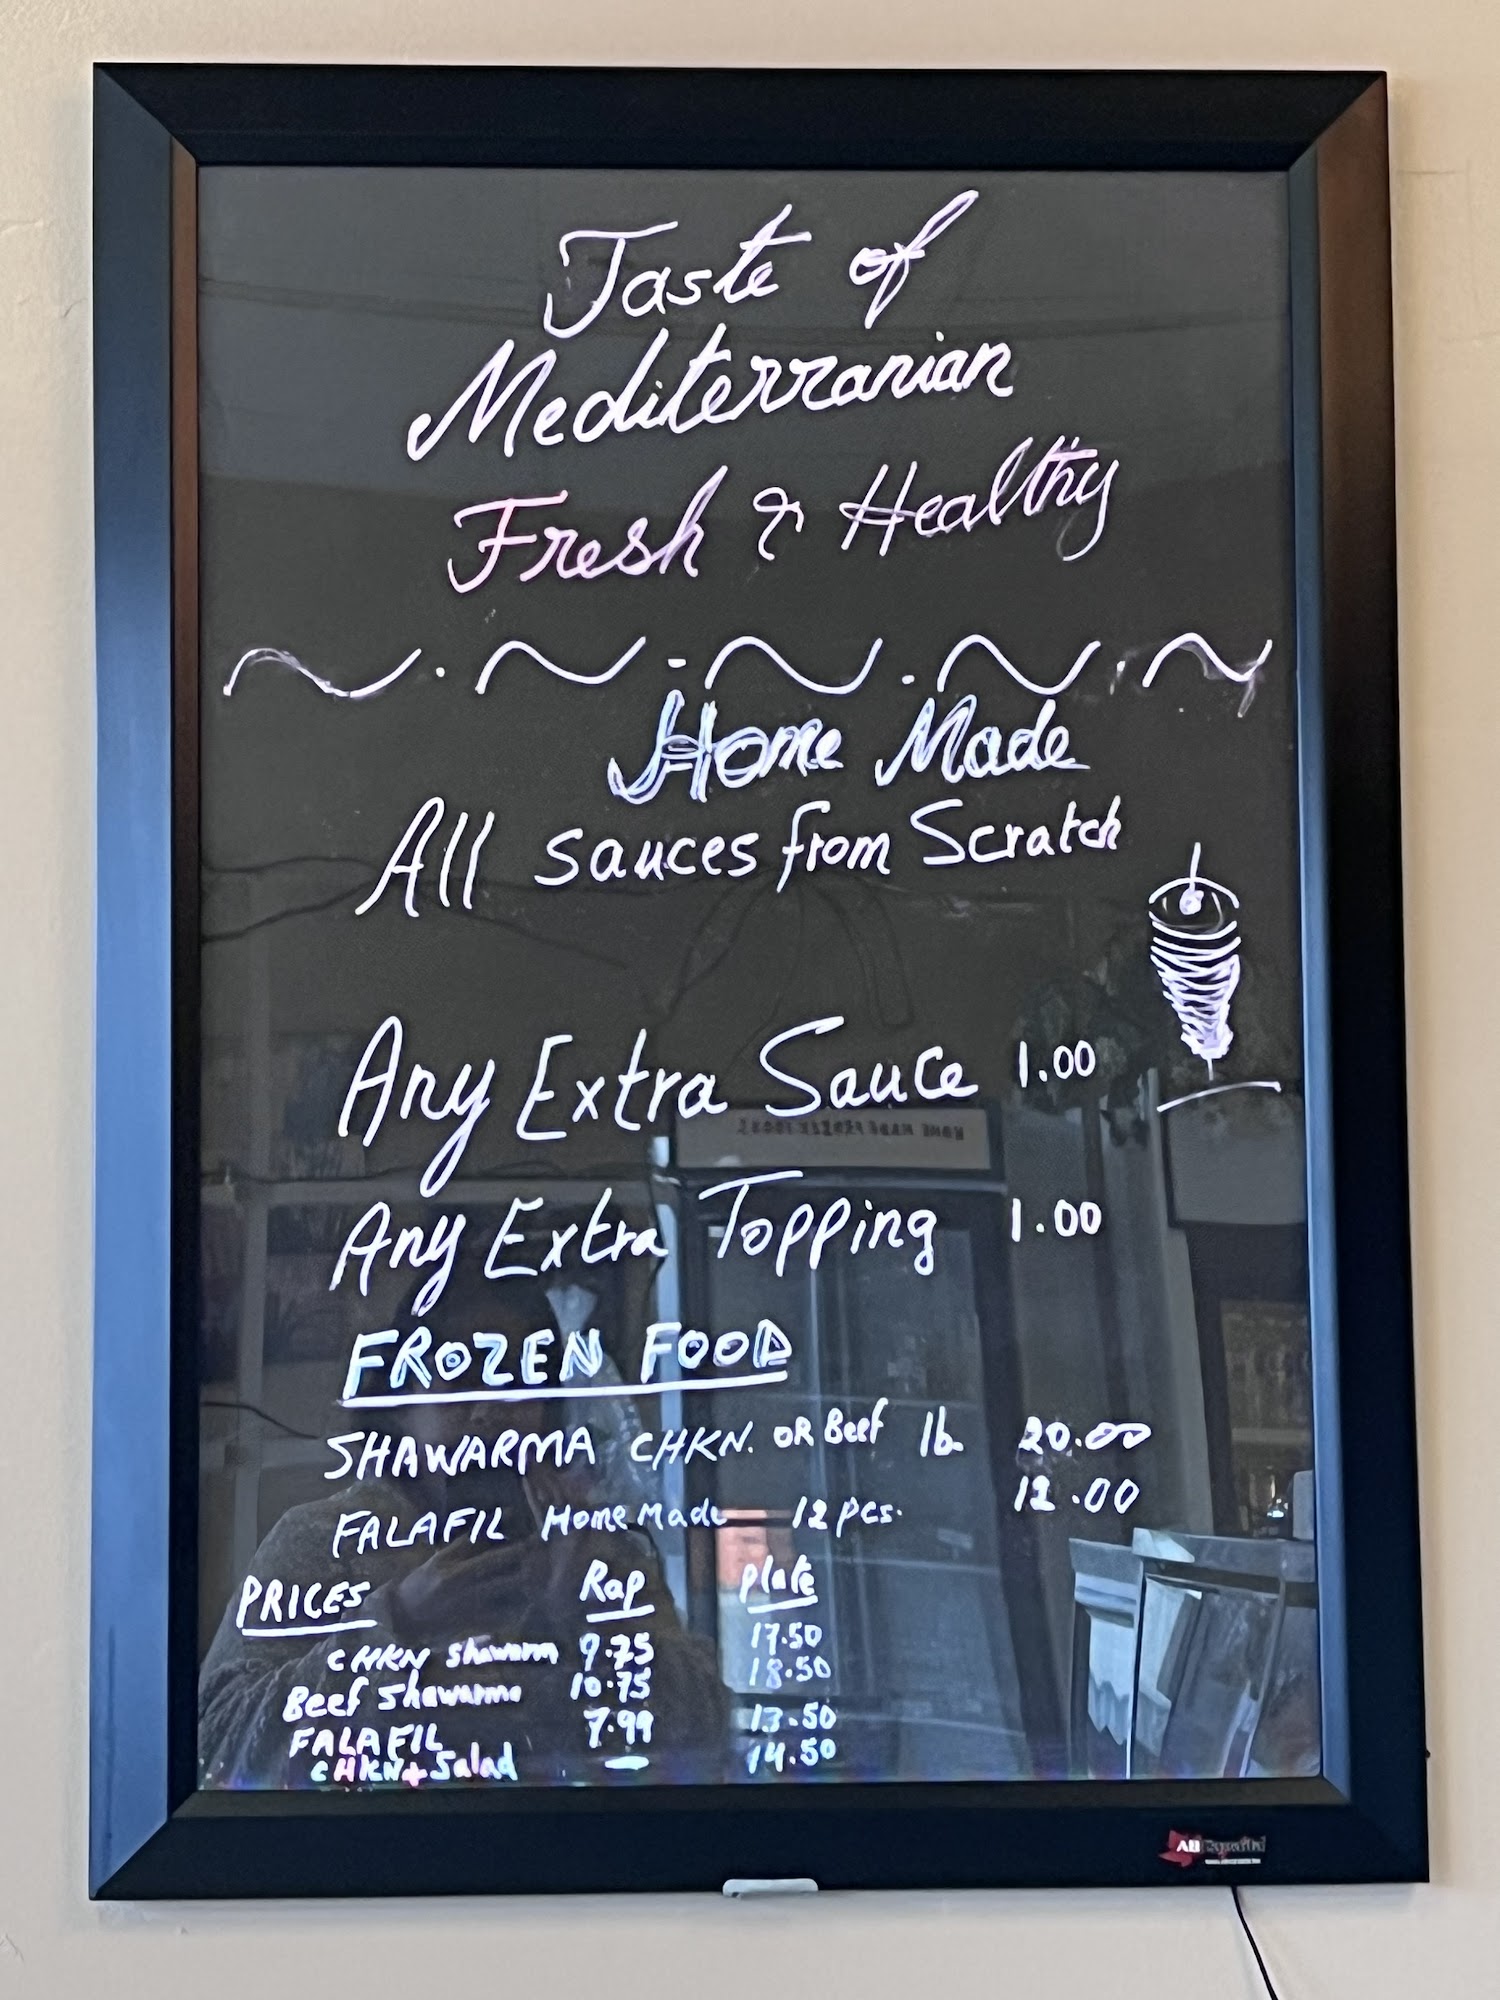 Taste of
Mediterranian
Fresh & Healthy
Home Made
All sauces from Scratch
Any Extra Sauce 1.00
Any Extra Topping 1.00
FROZEN FOOD
SHAWARMA CHKN. OR Beef lb. 20.00
FALAFIL Home Made 12 pcs. 12.00
PRICES Rap Plate
CHKN Shawarm 9.75 17.50
Beef Shawarma 10.75 18.50
FALAFIL 7.99 13.50
CHKN + Salad — 14.50